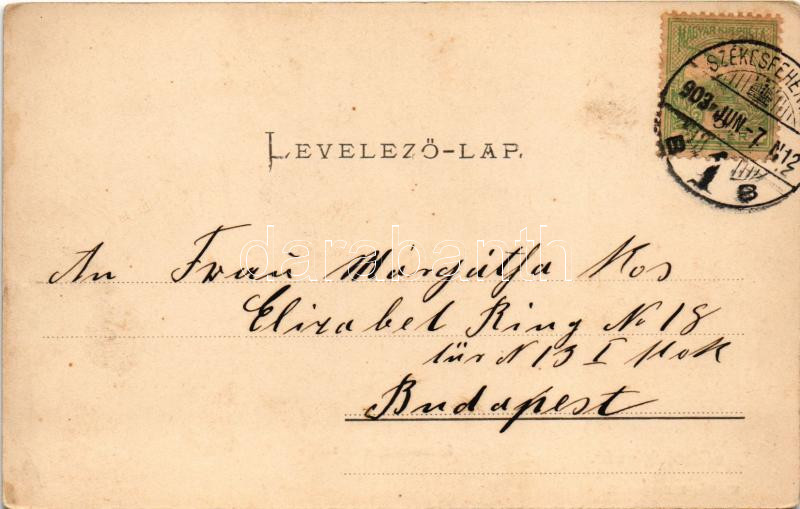 MAGYAR KIR. POSTA
SZÉKESFEHÉR
903 JUN-7. N12
B
LEVELEZŐ-LAP.
An Frau Márgátha Kos
Elizabet Ring No 18
tür N 13 I Stok
Budapest
darabanth